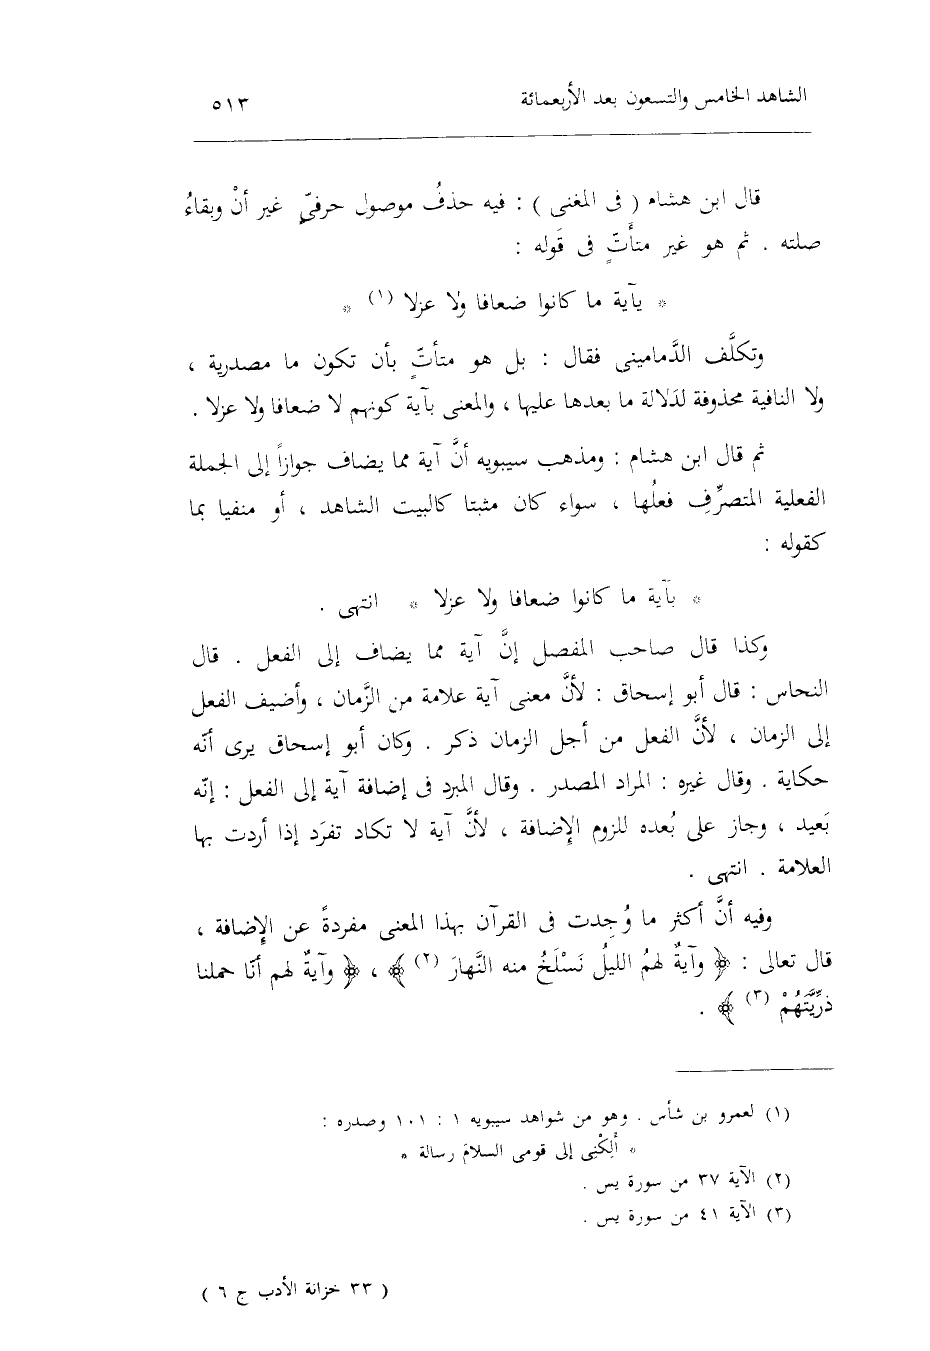 الشاهد الخامس والتسعون بعد الأربعمائة ٥١٣
قال ابن هشام ( فى المغنى ) : فيه حذفُ موصول حرفىٍّ غير أنْ وبقاءُ
صلته . ثم هو غير متأَتٍّ فى قَوله :
* يآية ما كانوا ضعافا ولا عزلا (١) *
وتكلَّف الدَّمامينى فقال : بل هو متأتٍّ بأن تكون ما مصدرية ،
ولا النافية محذوفة لدَلالة ما بعدها عليها ، والمعنى بآية كونهم لا ضعافا ولا عزلا .
ثم قال ابن هشام : ومذهب سيبويه أنَّ آية مما يضاف جوازاً إلى الجملة
الفعلية المتصرِّفِ فعلُها ، سواء كان مثبتا كالبيت الشاهد ، أو منفيا بما
كقوله :
* بآية ما كانوا ضعافا ولا عزلا * انتهى .
وكذا قال صاحب المفصل إنَّ آية مما يضاف إلى الفعل . قال
النحاس : قال أبو إسحاق : لأنَّ معنى آية علامة من الزَّمان ، وأضيف الفعل
إلى الزمان ، لأنَّ الفعل من أجل الزمان ذكر . وكان أبو إسحاق يرى أنّه
حكاية . وقال غيره : المراد المصدر . وقال المبرد فى إضافة آية إلى الفعل : إنّه
بَعيد ، وجاز على بُعده للزوم الإِضافة ، لأنَّ آية لا تكاد تفرَد إذا أردت بها
العلامة . انتهى .
وفيه أنَّ أكثر ما وُجِدت فى القرآن بهذا المعنى مفردةً عن الإِضافة ،
قال تعالى : ﴿ وآيةٌ لهمُ الليلُ نَسْلَخُ منه النَّهارَ (٢) ﴾ ، ﴿ وآيةٌ لهم أنّا حملنا
ذرِّيَّتَهُمْ (٣) ﴾ .
(١) لعمرو بن شأس . وهو من شواهد سيبويه ١ : ١٠١ وصدره :
* أَلِكْنِى إلى قومى السلامَ رسالة *
(٢) الآية ٣٧ من سورة يس .
(٣) الآية ٤١ من سورة يس .
( ٣٣ خزانة الأدب ج ٦ )